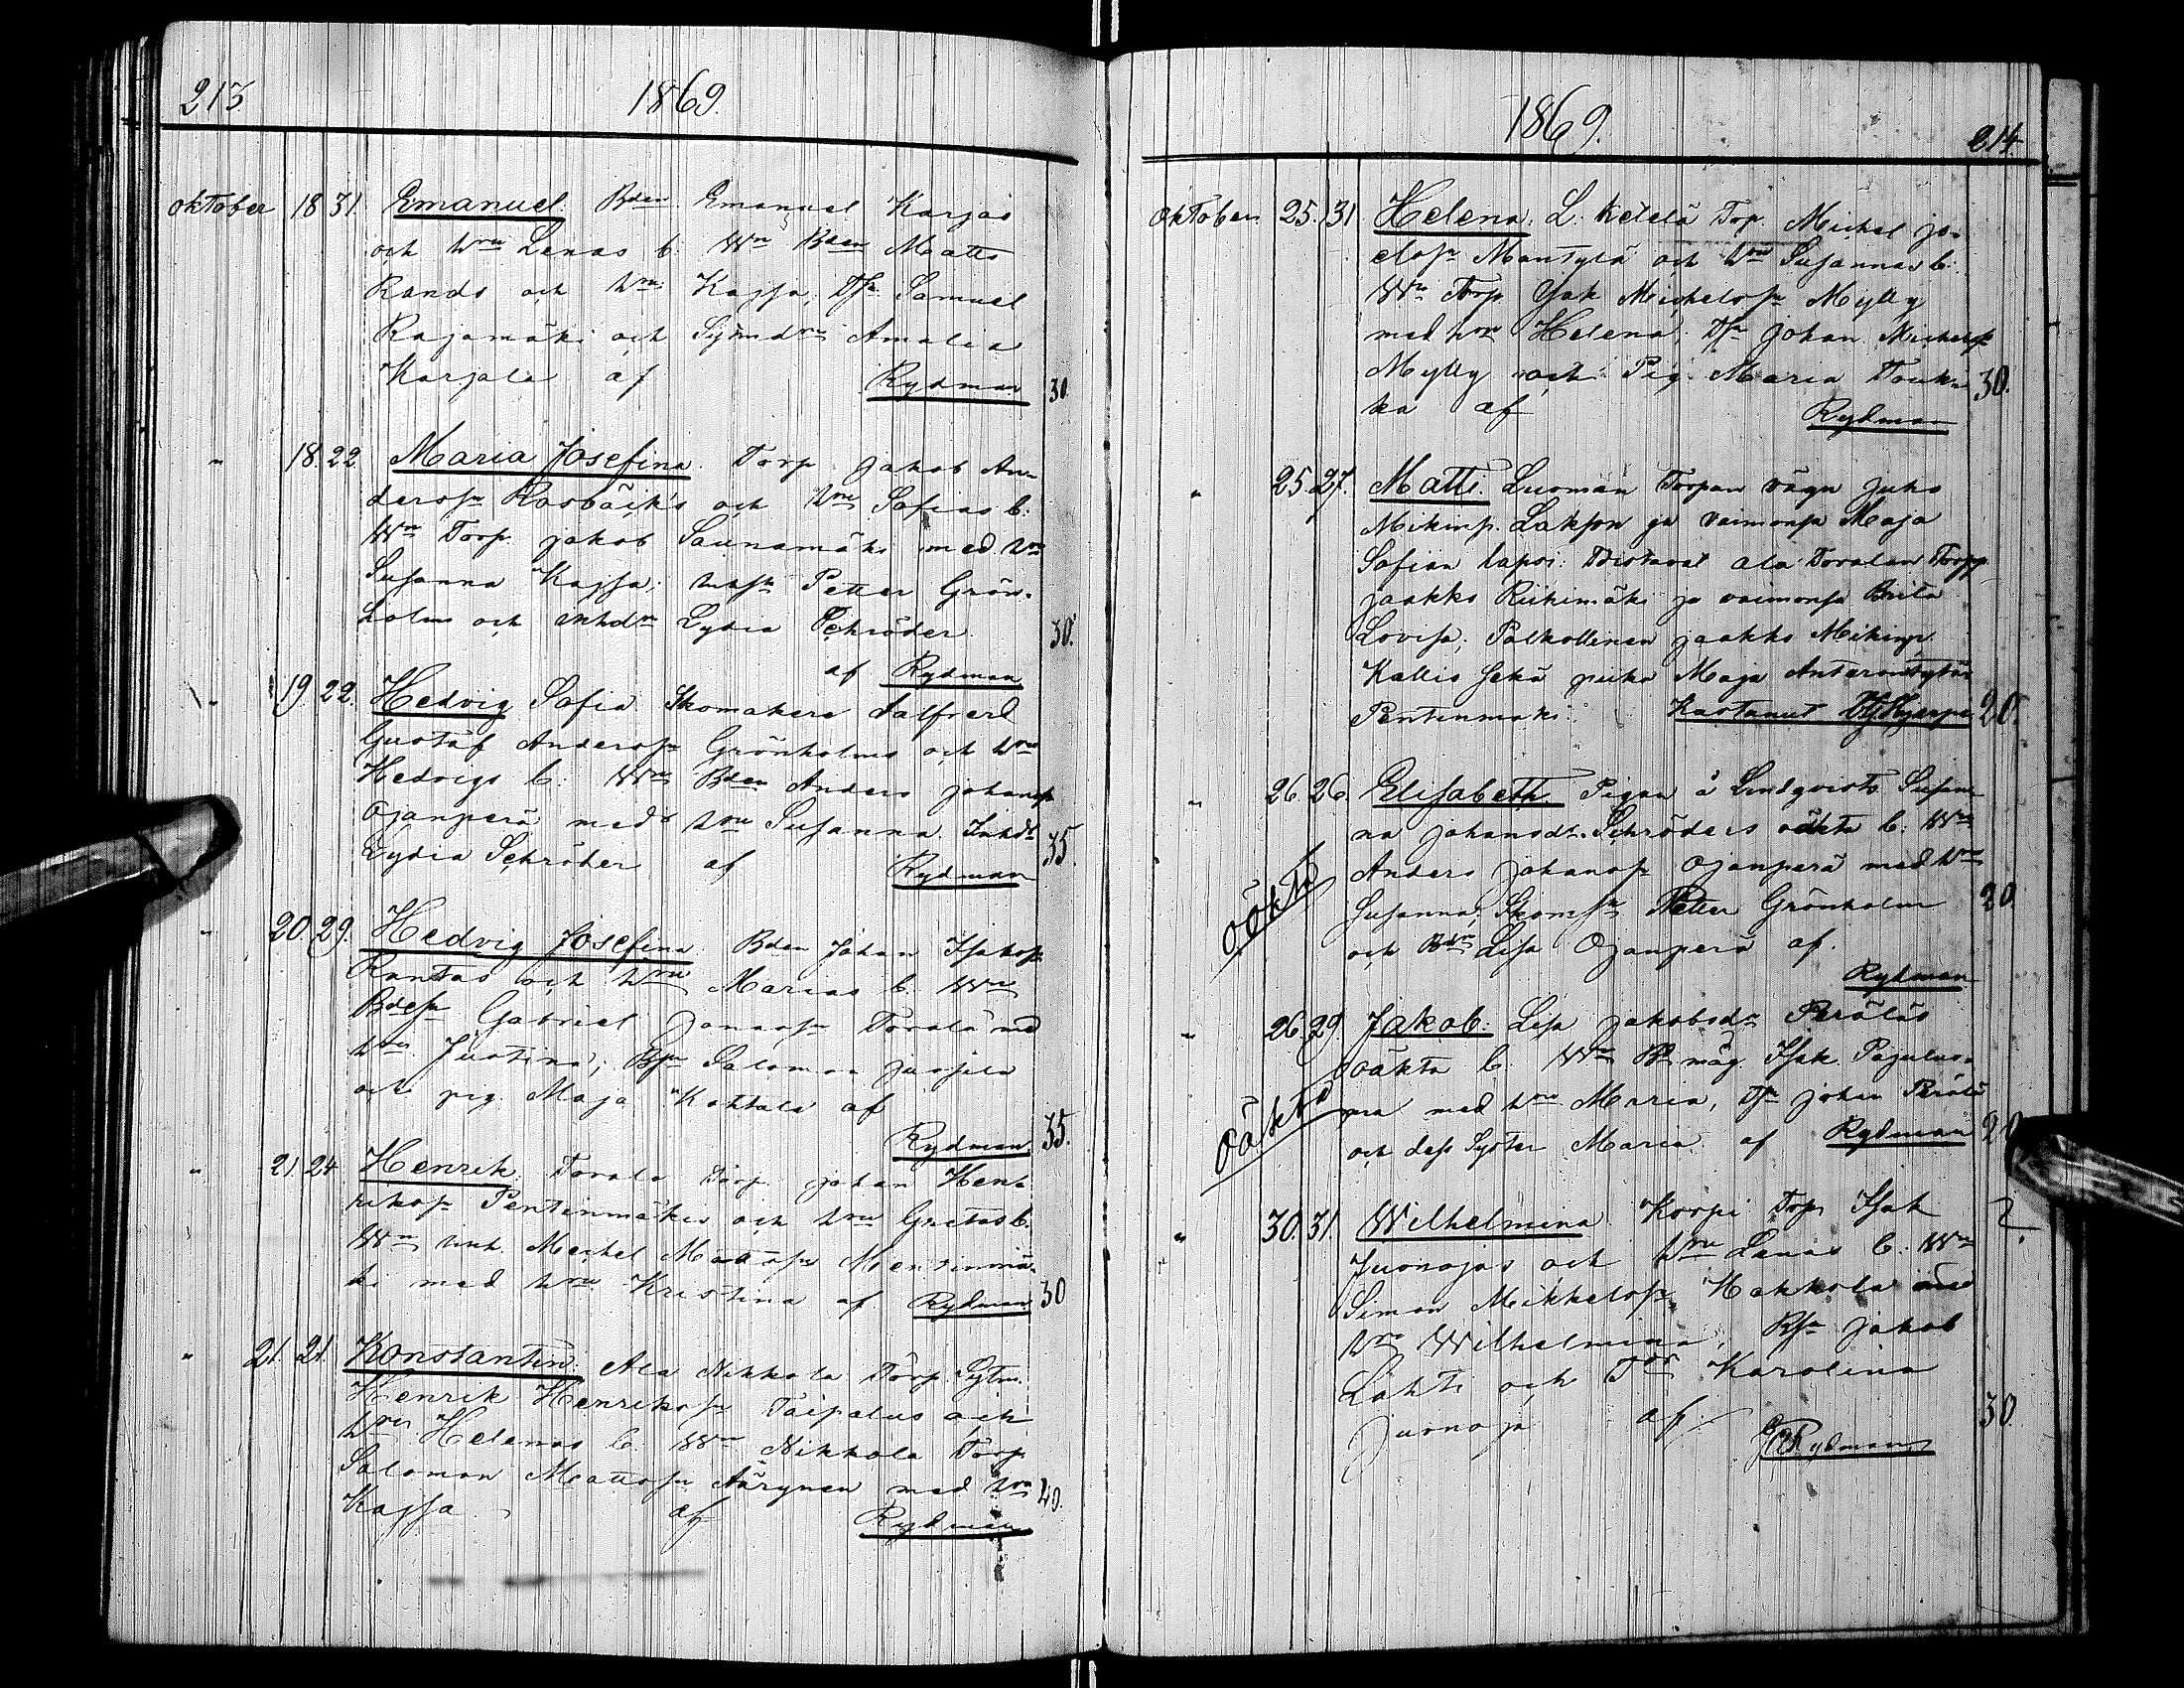 213.
1869.
Oktober 18 31 Emanuel Bden Emanuel Karjas
och hru Lenas b. Wn Bden Matts
Rands och hru Kajsa, Dr Samuel
Rajamäki och Amalia
Karjala af Rydman 30.
" 18. 22 Maria Josefina. Torp Jakob An-
derss Rosbäck's och hru Sofias b.
Wn Torp. Jakob Saunamäki med hru
Susanna Kajsa; Petter Grön-
holm och Lydia Schröder 30.
af Rydman
" 19. 22. Hedvig Sofia Skomakere
Gustaf Anders Grönholms och hru
Hedvigs b. Wn Bden Anders Johans
Ojanperä med hru Susanna Inhd
Lydia Schröder af Rydman 35.
" 20. 29. Hedvig Josefina Bden Johan Isaks
Rantas och hru Marias b. Wn
Gabriel Torala med
hru Justina; Salomon
och pig. Maja Kohtala af
Rydman 35.
" 21. 24 Henrik. Torala Torp. Johan Hen-
riks Pentinmäkis och hru Gretas b.
Wn inh. Michel Matts
ki med hru Kristina af Rydman 30
" 21. 21. Konstantin. Ala Nikkola Torp.
Henrik Henriks Taipalus och
hrus Helenas b. Wn Nikkola Torp
Salomon Matts Äärynen med hru
Kajsa af Rydman 40.
1869.
214.
Oktober 25. 31 Helena. L. Ketelä Torp. Michel Jo-
els Mäntylä och hru Susannas b.
Wn Torp Isak Michels Mylly
med hru Helena, Dr Johan Michels
Mylly och Pig. Maria Touk- 30.
ka af Rydman
" 25. 27. Matts. Luoman Torpan vägn Juho
Mikinp. Lakson ja vaimonsa Maja
Sofian lapsi. Todistavat ala Toralan Torpp
Jaakko Riihimäki ja vaimonsa Brita
Lovisa; Palkollinen Jaakko Mikinp.
Kallio sekä piika Maja Anterontytär
Pentinmäki. Kastanut 20.
" 26. 26. Elisabeth. Pigan å Lindqvists Susan-
na Johansdr. Schröders oäkta b. Wn
Anders Johans Ojanperä med hru
oäkta Susanna; Petter Grönholm 20
och Lisa Ojanperä af.
Rydman
" 26. 29 Jakob. Lisa Jakobsdr Peräläs
oäkta b. Wn måg Isak Pajuluo-
oäkta ma med hru Maria, Dr Johan Perälä
och dess Syster Maria af Rydman 20
" 30. 31. Wilhelmina Korpi Torp Isak
Juonojas och hru Lenas b. Wn
Simon Mikkels Hakkola med
hru Wilhelmina, Jakob
Lahti och Karolina
Juonoja af. Rydman 30